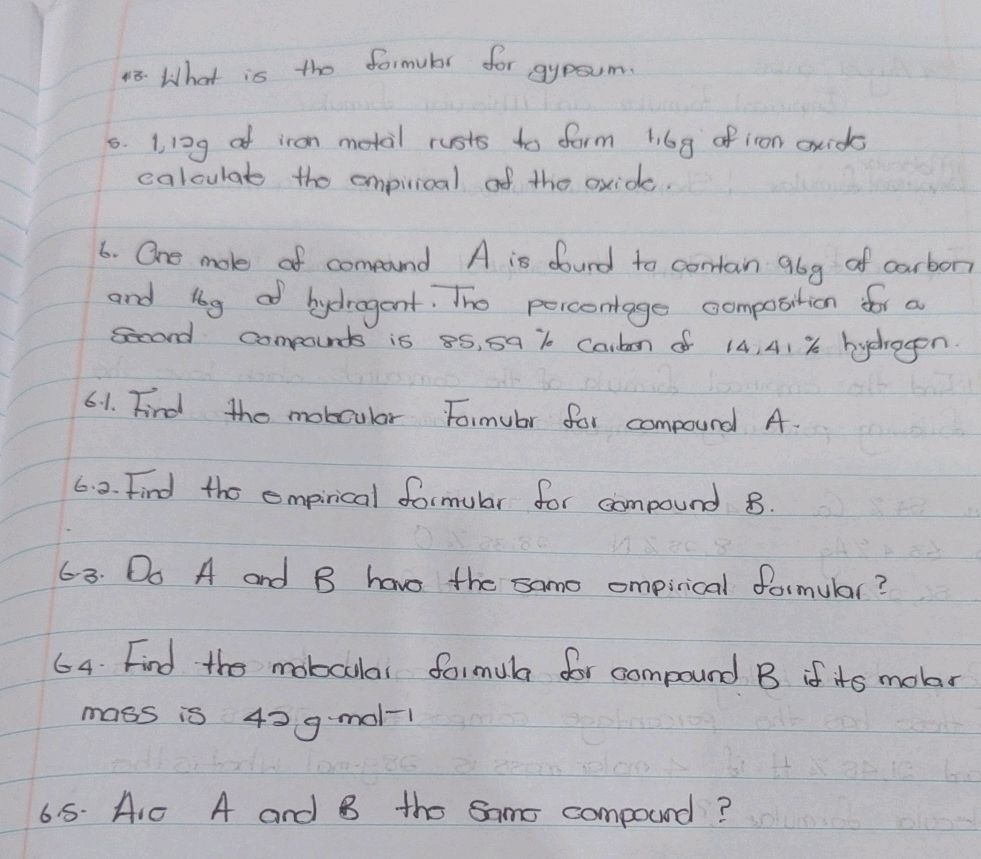 4.3. What is the formular for gypsum.
5. 1,12g of iron metal rusts to form 1,6g of iron oxide
calculate the empirical of the oxide.
6. One mole of compound A is found to contain 96g of carbon
and 16g of hydrogent. The percentage composition for a
second compounds is 85,59 % carbon & 14,41 % hydrogen.
6.1. Find the molecular Formular for compound A.
6.2. Find the empirical formular for compound B.
6.3. Do A and B have the same empirical formular?
6.4. Find the molecular formula for compound B if its molar
mass is 42 g.mol-1
6.5. Are A and B the same compound?